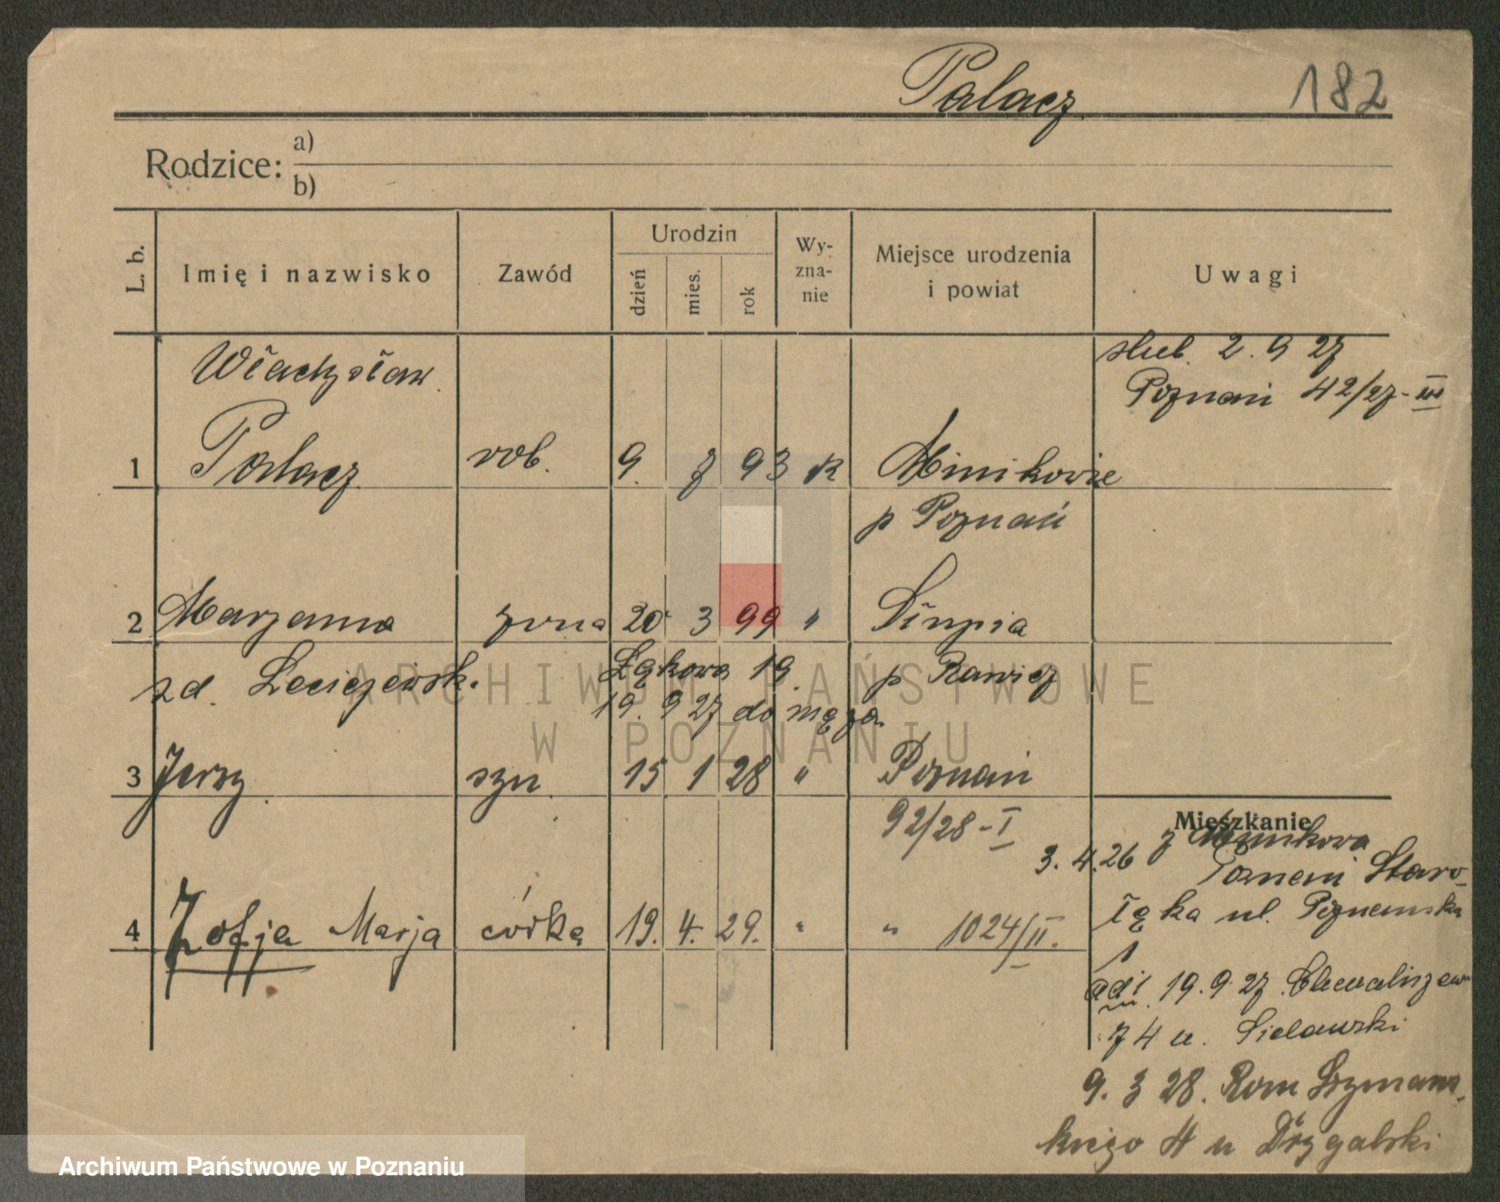 Palacz 182
Rodzice: a)
b)
L. b. Imię i nazwisko Zawód Urodzin dzień mies. rok Wyznanie Miejsce urodzenia i powiat Uwagi
ślub. 2. 9 27
Poznań 42/27-III
Władysław
1 Palacz rob. 9. 7 93 R Minikowie
p Poznań
2 Marzanna żona 20 3 99 " Słupia
zd. Łąkowa 19. p Rawicz
19. 9 27 do męża
3 Jerzy syn 15 1 28 " Poznań
92/28-I
4 Zofja Marja córka 19. 4. 29. " " 1024/II.
Mieszkanie
z Minikowa
3. 4. 26 Poznań Staro-
łęka ul. Poznańska
1
19. 9. 27
74 u.
9. 3 28. Rom Szymań-
skiego 4 u Drygalski
ARCHIWUM PAŃSTWOWE
W POZNANIU
Archiwum Państwowe w Poznaniu